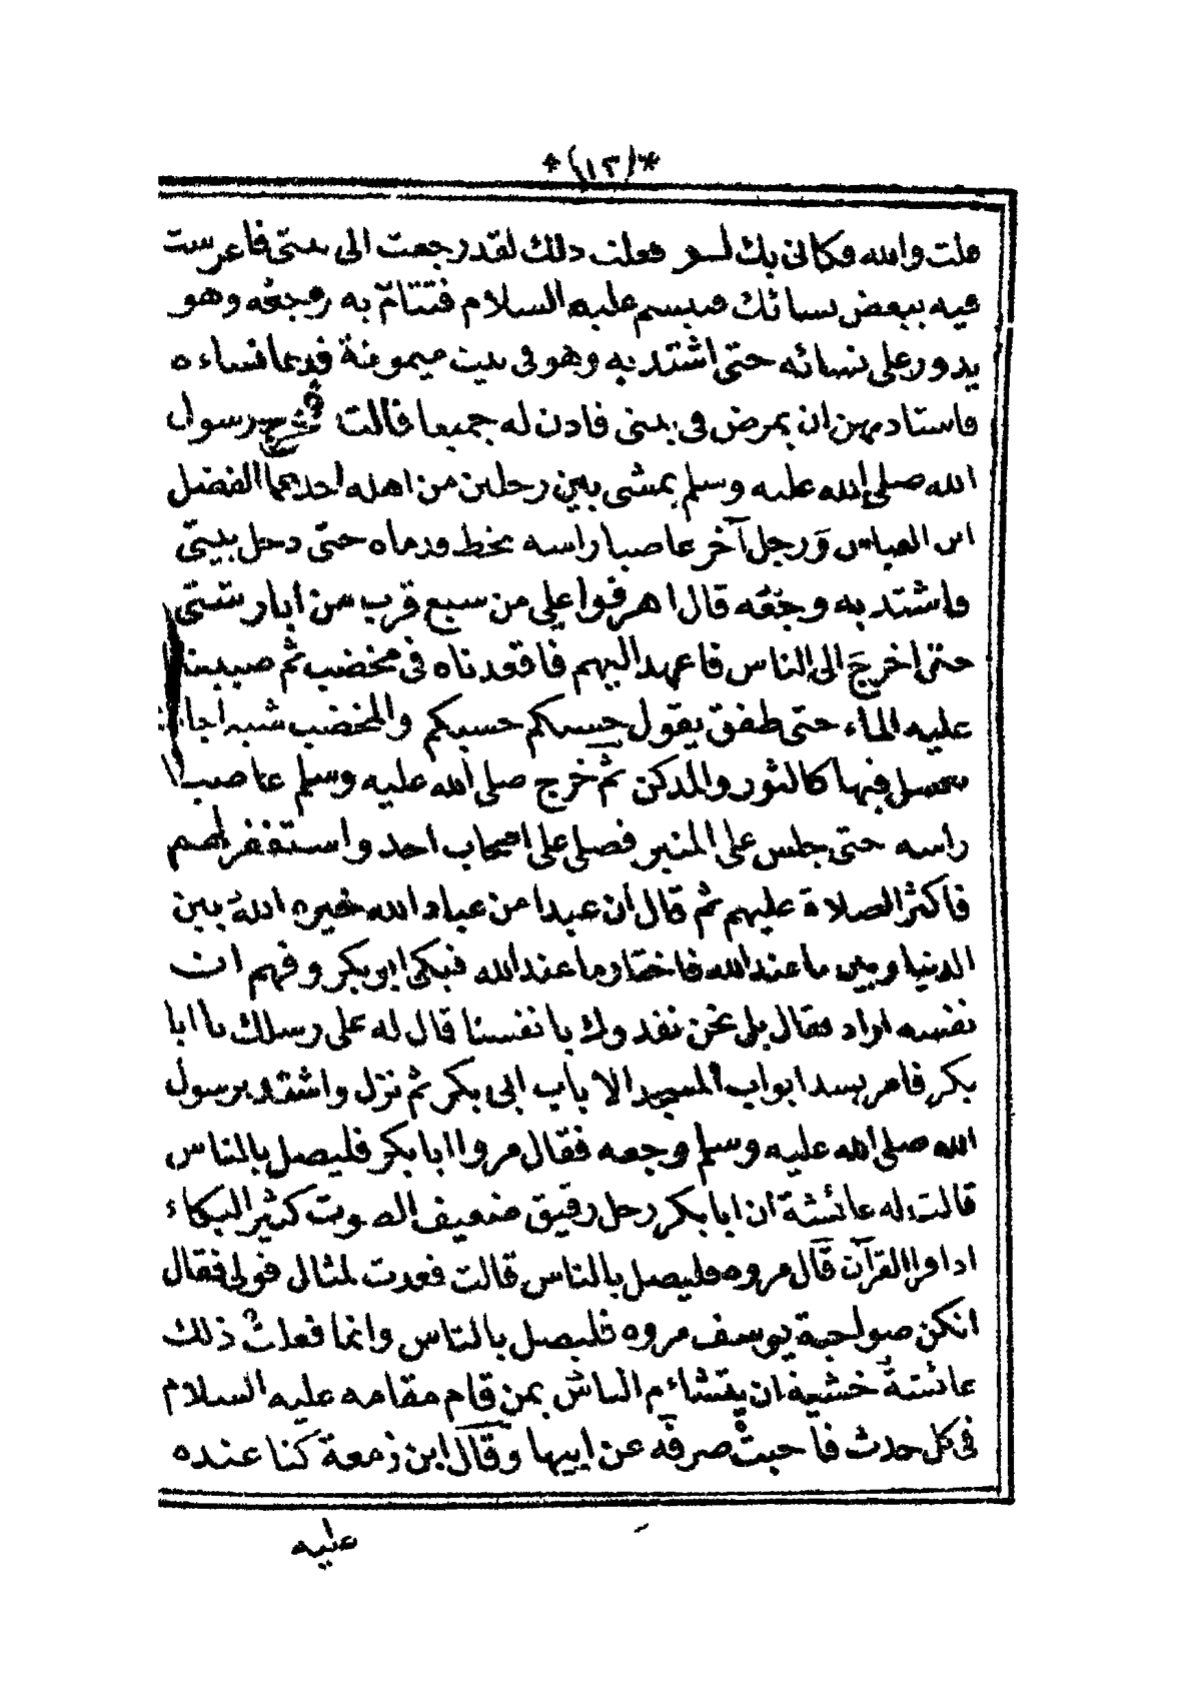 *(١٣)*
قلت والله فكانى بك لو فعلت ذلك لقد رجعت الى بيتى فاعرست
فيه ببعض نسائك فتبسم عليه السلام فتتامّ به وجعُه وهو
يدور على نسائه حتى اشتد به وهو فى بيت ميمونة فدعا نساءه
فاستاذنهن ان يمرض فى بيتى فاذن له جميعا قالت فخرج رسول
الله صلى الله عليه وسلم يمشى بين رجلين من اهله احدهما الفضل
ابن العباس وَرجل آخر عاصبا راسه تخط قدماه حتّى دخل بيتى
فاشتد به وجعُه قال اهرقوا على من سبع قرب من ابار شتى
حتى اخرجَ الى الناس فاعهد اليهم فاقعدناه فى مخضب ثم صببنا
عليه الماء حتى طفق يقول حسبكم حسبكم والمخضب شبه اجانة
تغسل فيها كالثور والمركن ثم خرج صلى الله عليه وسلم عاصبا
راسه حتى جلس على المنبر فصلى على اصحاب احد واستغفر لهم
فاكثر الصلاة عليهم ثم قال ان عبدا من عباد الله خيره اللهُ بين
الدنيا وبين ما عند الله فاختار ما عند الله فبكى ابو بكر وفهم ان
نفسه اراد فقال بلى نحن نفدوك بانفسنا قال له على رسلك يا ابا
بكر فامر بسد ابواب المسجد الا باب ابى بكر ثم نزل واشتد برسول
الله صلى الله عليه وسلم وجعه فقال مروا ابا بكر فليصل بالناس
قالت له عائشة ان ابا بكر رجل رقيق ضعيف الصوت كثير البكاء
اذا قرا القرآن قال مروه فليصل بالناس قالت فعدت لمثال قولى فقال
انكن صواحبة يوسف مروه فليصل بالناس وانما فعلت ذلك
عائشةُ خشية ان يتشاءم الناس بمن قام مقامه عليه السلام
فى كل حدث فاحبت صرفه عن ابيها وقال ابن زمعة كنا عنده
عليه